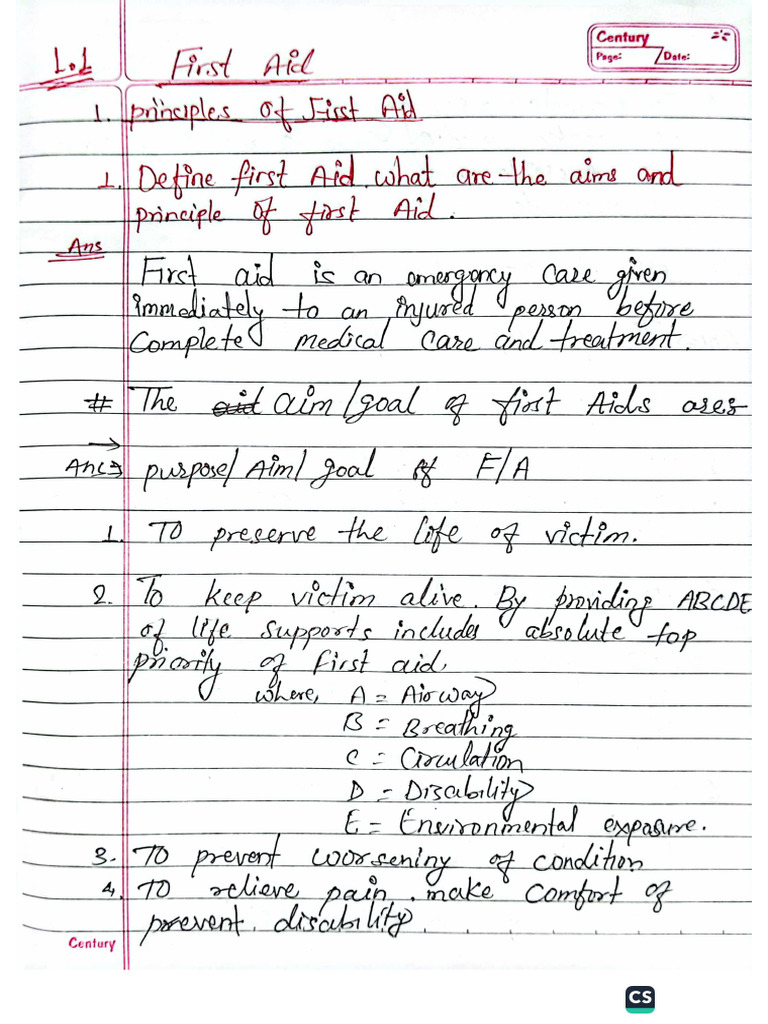 Century
Page: Date:
1.1 First Aid
1. principles of First Aid
1. Define first Aid. what are the aims and
principle of first Aid.
Ans
First aid is an emergancy care given
immediately to an injured person before
Complete medical care and treatment.
# The aid aim/goal of first Aids ares
Ans⇒ purpose/Aim/goal of F/A
1. To preserve the life of victim.
2. To keep victim alive. By providing ABCDE
of life supports includes absolute top
priority of first aid.
where, A = Airway
B = Breathing
C = Circulation
D = Disability
E = Environmental expasure.
3. To prevent worsening of condition
4. To relieve pain. make comfort of
prevent. disability.
Century
CS